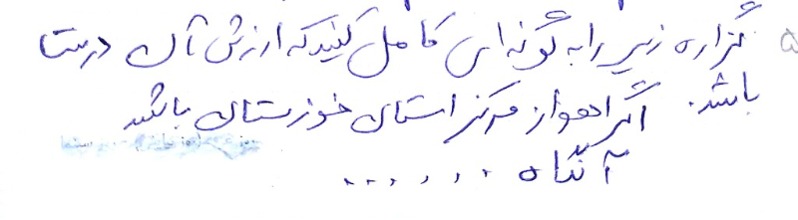 ۵ گزاره زیر را به گونه ای کامل کنید که ارزش آن درست
باشد. اگر اهواز مرکز استان خوزستان باشد
آنگاه ......